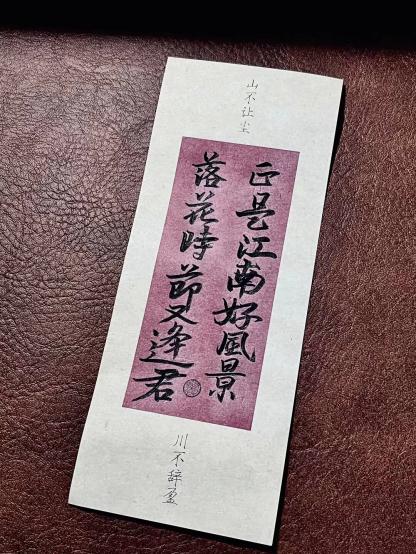 山不让尘
正是江南好風景
落花時節又逢君
川不辞盈